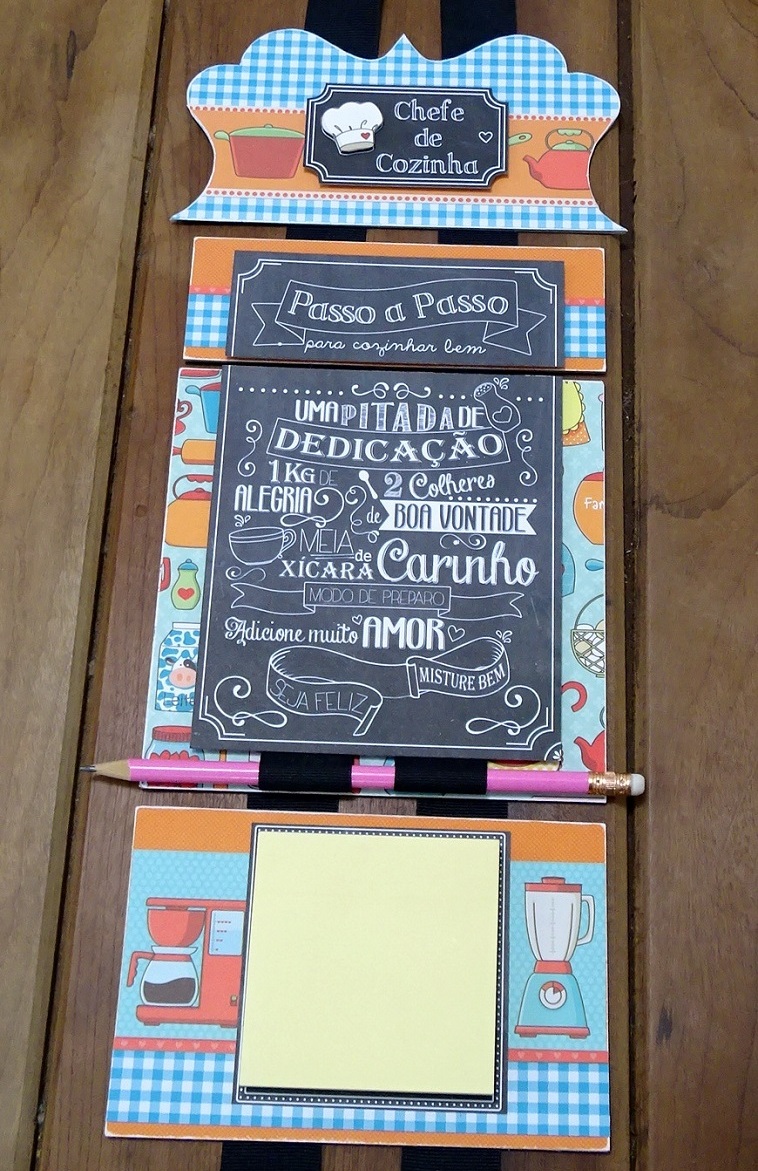 Chefe
de
Cozinha
Passo a Passo
para cozinhar bem
UMA PITADA DE
DEDICAÇÃO
1KG DE
ALEGRIA
2 Colheres
de BOA VONTADE
MEIA
XÍCARA de Carinho
MODO DE PREPARO
Adicione muito AMOR
MISTURE BEM
SEJA FELIZ